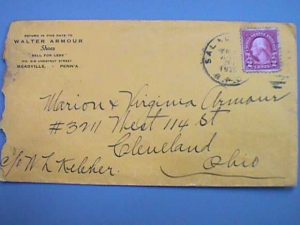 RETURN IN FIVE DAYS TO
WALTER ARMOUR
Shoes
"SELL FOR LESS"
CHESTNUT STREET
MEADVILLE, - PENN'A.
Marion & Virginia Armour
#3211 West 114 St
Cleveland
Ohio
c/o W L Keleher.